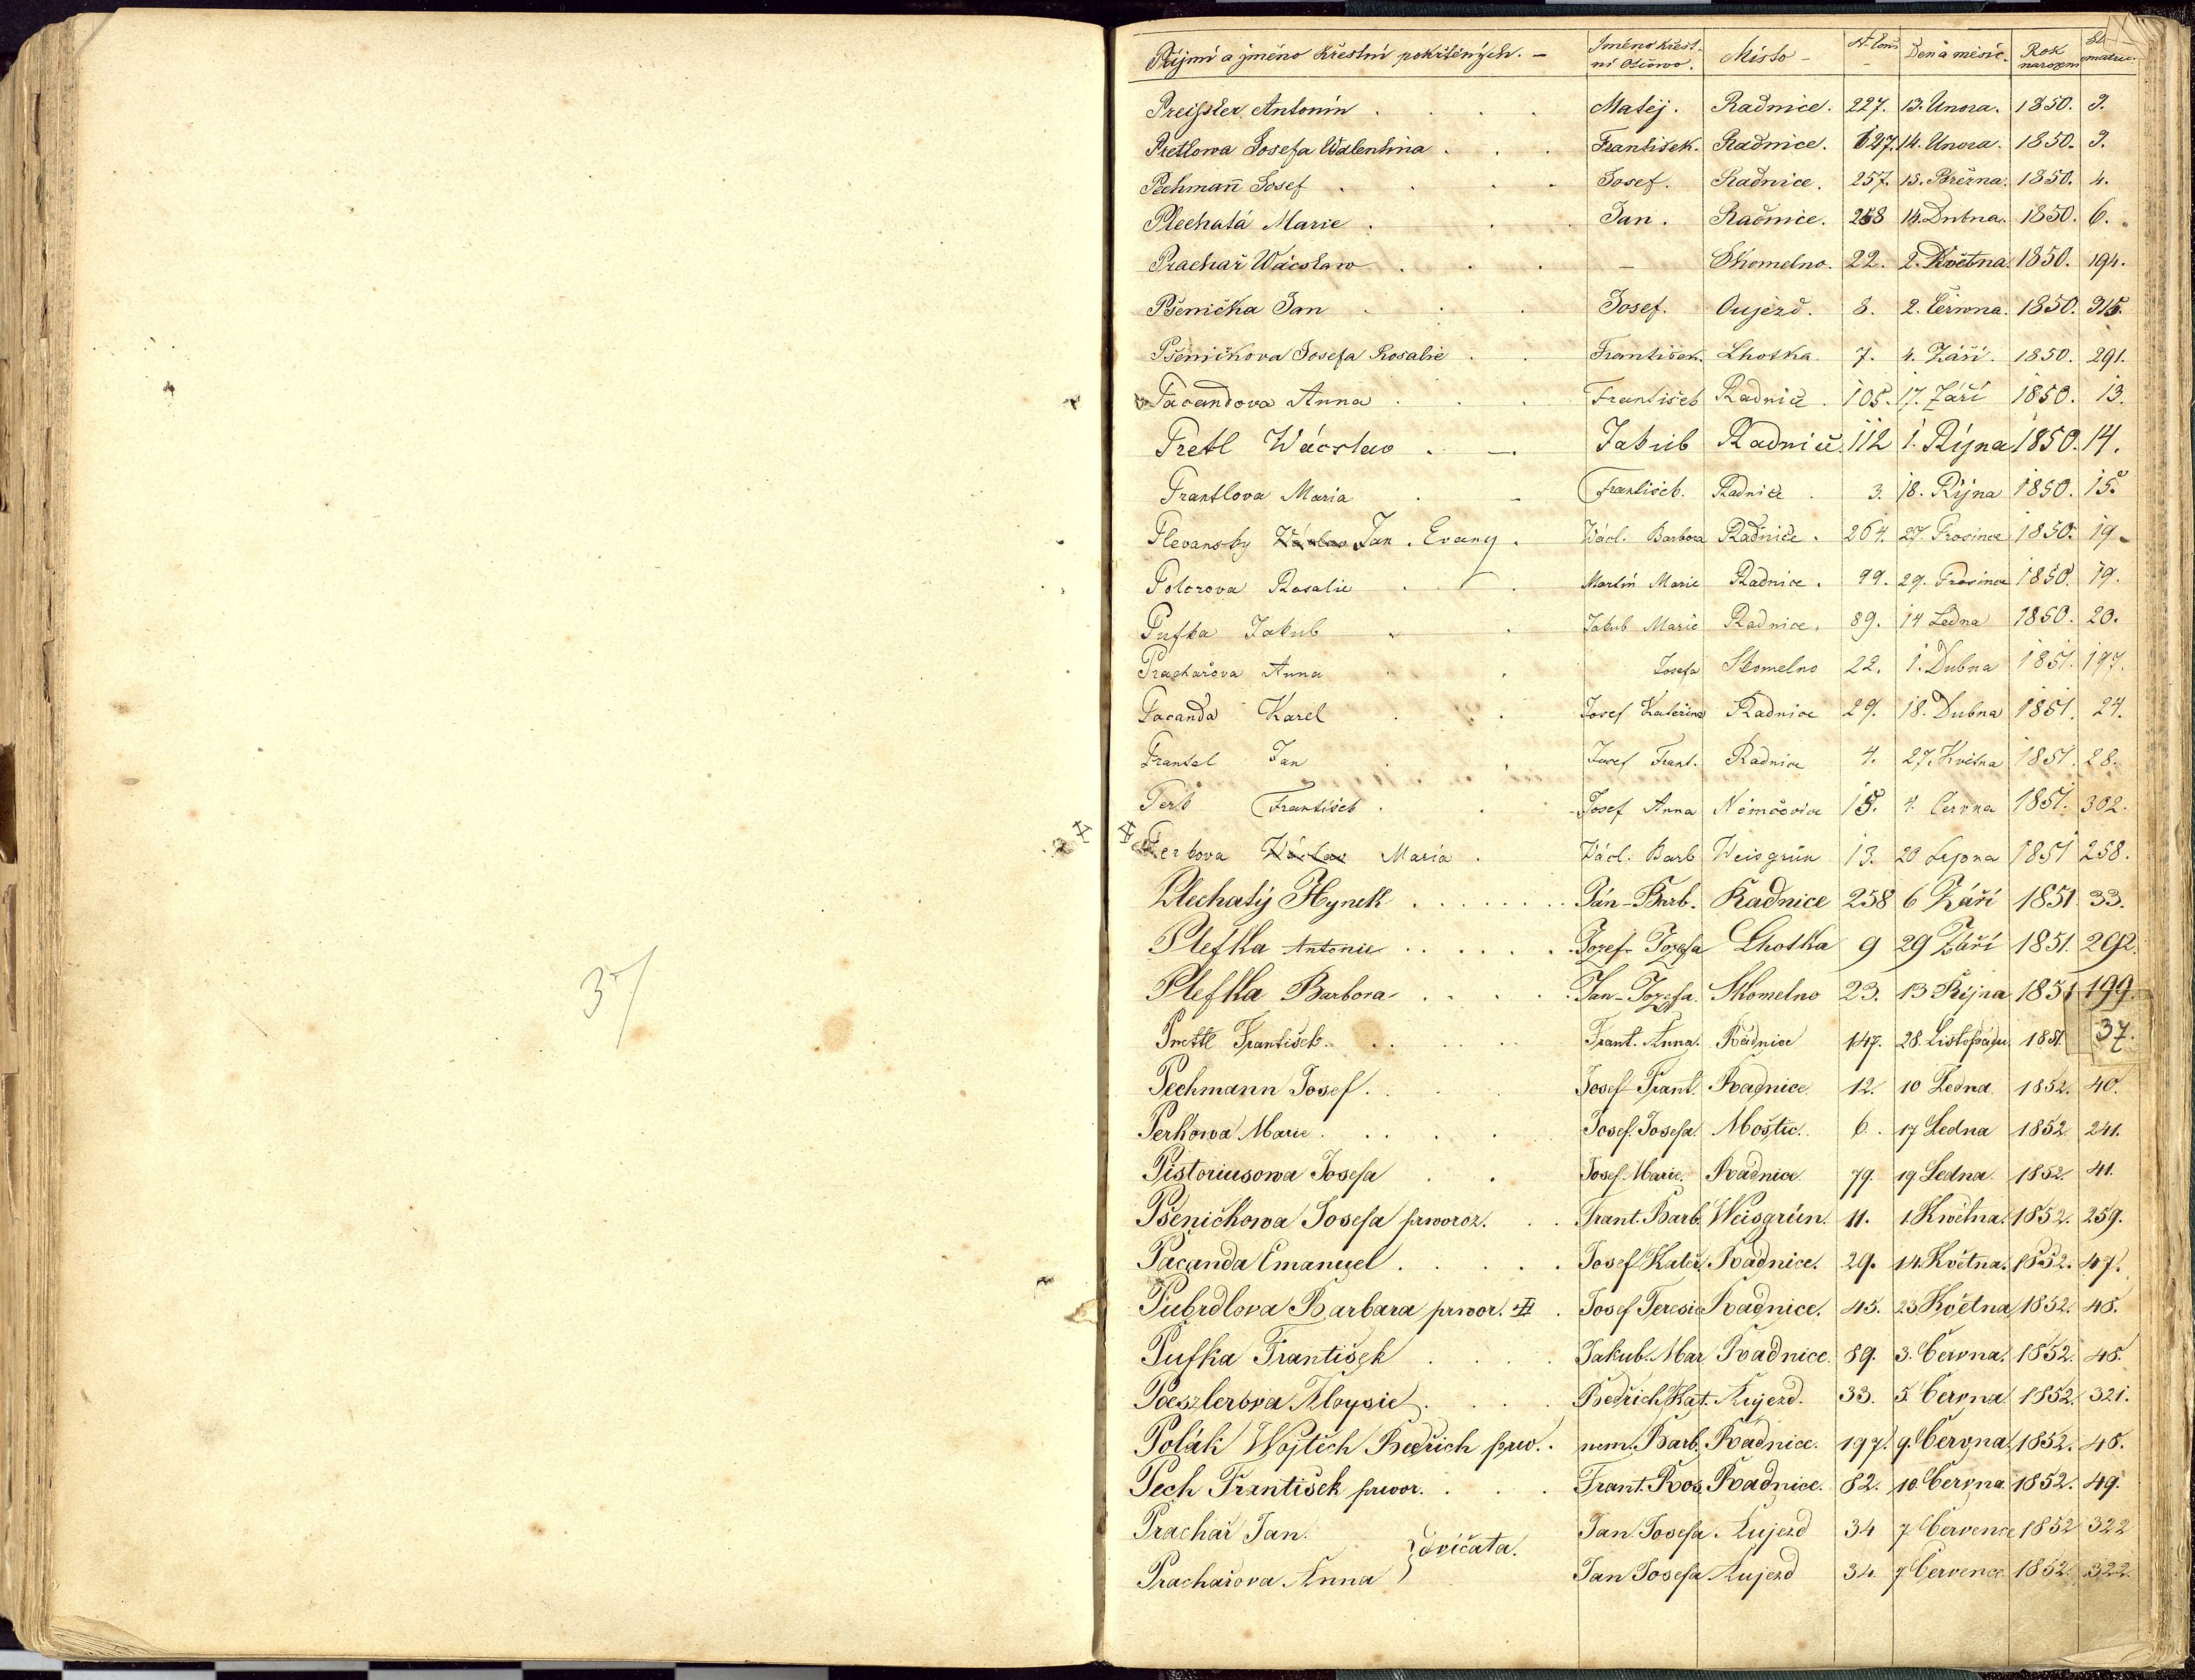 37
Příjmí a jméno křestní pokřtěných. – Jméno křestní Otcovo. Místo – Den a měsíc. Rok narození
Preissler Antonín . . . . Matěj. Radnice. 227. 13. Února. 1850. 3.
Pretlowa Josefa Walentina . . . František. Radnice. 127. 14. Února. 1850. 3.
Pechman̄ Josef . . . . Josef. Radnice. 257. 15. Března. 1850. 4.
Plechatá Marie . . . Jan. Radnice. 258 14. Dubna. 1850. 6.
Prachař Wácslaw . . . – Skomelno. 22. 2. Května. 1850. 194.
Pšenička Jan . . . Josef. Oujezd. 8. 2. Června. 1850. 315.
Pšeničkova Josefa Rosalie . . František. Lhotka 7. 4. Září. 1850. 291.
Pacandova Anna . . . František Radnice. 105. 17. Září 1850. 13.
Pretl Wácslav . –. Jakub Radnice. 112 1. Října 1850. 14.
Prantlova Maria . – František. Radnice. 3. 18. Října 1850. 15.
Plevansky Jan . Evang. Václ. Barbora Radnice. 264. 27 Prosince 1850. 19.
Polcrova Rosalie . . Martin Marie Radnice. 99. 29. Prosince 1850. 19.
Pufka Jakub . . Jakub Marie Radnice. 89. 14 Ledna 1850. 20.
Prachařova Anna . . Josefa Skomelno 22. 1. Dubna 1851. 197.
Pacanda Karel . . Josef Kateřina Radnice 29. 18. Dubna 1851. 24.
Prantel Jan . . Josef Frant. Radnice 4. 27. Května 1851. 28.
Perk František . . Josef Anna Němčovice 15. 4. Června 1851. 302.
Perkova Václav Maria . Václ. Barb Weisgrün 13. 20 Srpna 1851 258.
Plechatý Hynek . . . . . . . Ján - Barb. Radnice 258 6 Září 1851. 33.
Plefka Antonie . . . . . Jozef - Jozefa Lhotka 9 29 Září 1851. 292.
Plefka Barbora . . . . . Jan - Jozefa. Skomelno 23. 13 Října 1851 199.
Prettl František. . . . . Frant. Anna. Radnice 147. 28. Listopadu 1851. 37.
Pechmann Josef. . . . Josef Frant. Radnice 12. 10 Ledna 1852. 40.
Perkowa Marie . . . . . Josef. Josefa. Moštic. 6. 17 Ledna 1852 241.
Pistoriusowa Josefa . . Josef. Marie. Radnice 79. 19 Ledna. 1852. 41.
Pšeničkowa Josefa prworoz. . . Frant. Barb. Weisgrün. 11. 1. Května. 1852. 259.
Pacanda Emanuel . . . . . Josef Kateř. Radnice. 29. 14. Května. 1852. 47.
Pubrdlova Barbara prwor. . Josef Teresie Radnice. 45. 23 Května 1852. 48.
Pufka František . . . . Jakub. Mar Radnice. 89. 3. Června. 1852. 48.
Poeszlerova Aloysie . . . . Bedřich Kat. Aujezd. 33. 5. Června 1852. 321.
Polák Wojtěch Bedřich prw. . nem. Barb. Radnice. 197. 9. Června. 1852. 48.
Pech František prwor. . . . Frant. Ros. Radnice. 82. 10. Června. 1852. 49.
Prachař Jan. } dvíčata. Jan Josefa. Aujezd 34 7 Července 1852 322
Prachařova Anna Jan Josefa Aujezd 34. 7 Července 1852. 322.